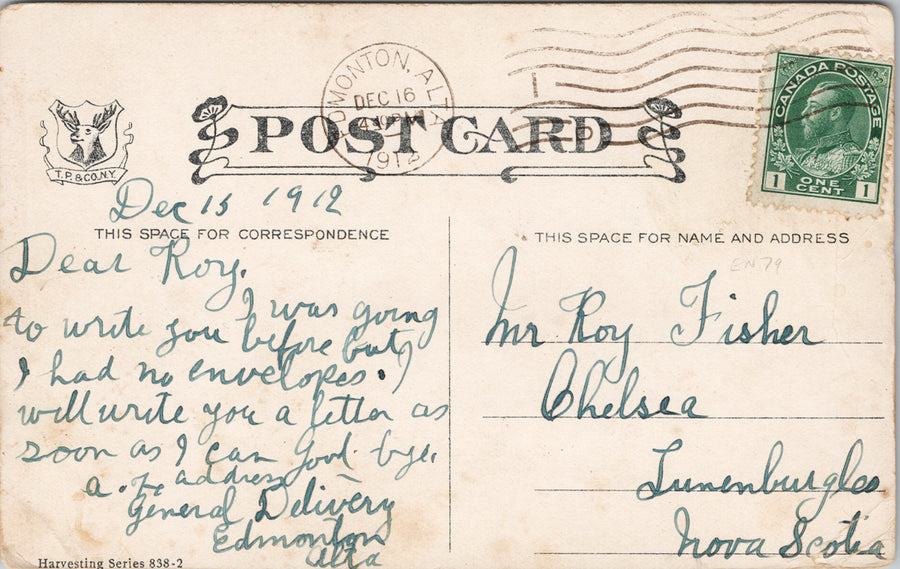 EDMONTON, ALTA
DEC 16
1912
CANADA POSTAGE
1 ONE CENT 1
T. P. & CO. N.Y.
POST CARD
Dec 15 1912
THIS SPACE FOR CORRESPONDENCE
Dear Roy.
I was going
to write you before but
I had no envelopes. I
will write you a letter as
soon as I can good bye.
address
General Delivery
Edmonton
Alta
Harvesting Series 838-2
THIS SPACE FOR NAME AND ADDRESS
EN79
Mr Roy Fisher
Chelsea
Lunenburg Co
Nova Scotia